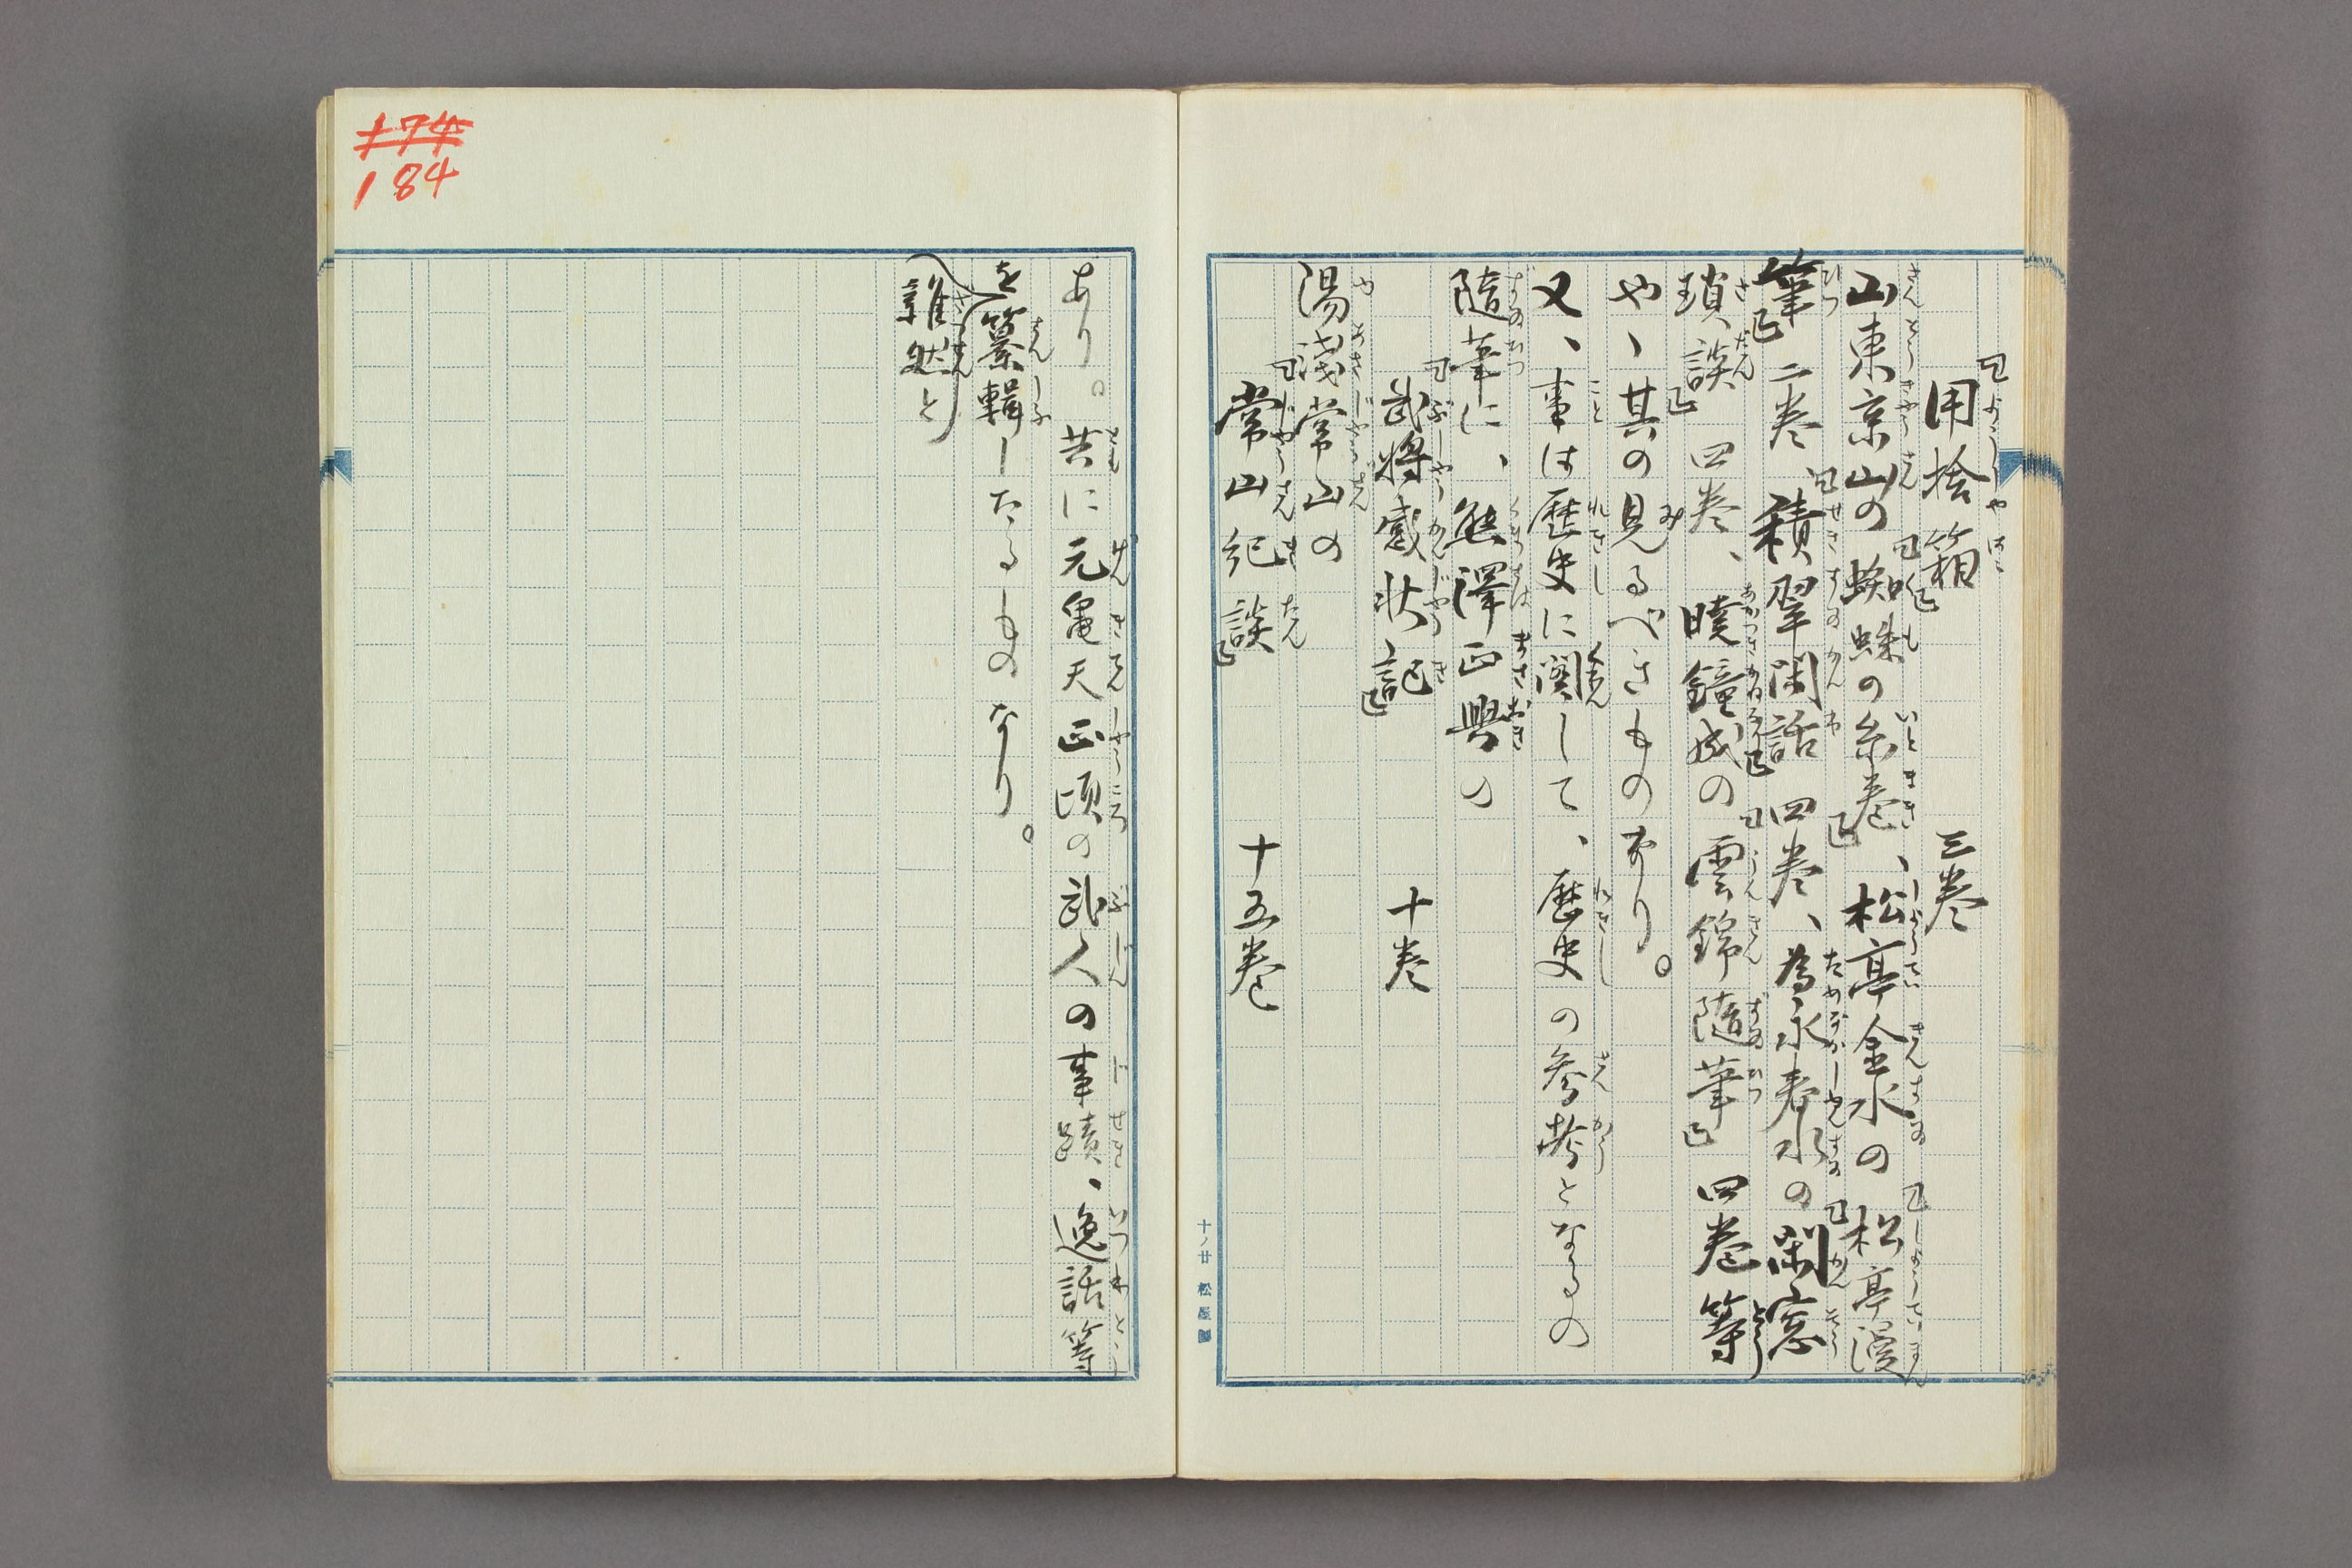 『用捨箱』 三巻
山東京山の『蜘蛛の糸巻』、松亭金水の『松亭漫
筆』二巻、『積翠閑話』四巻、為永春水の『閑窓
瑣談』四巻、暁鐘成の『雲錦随筆』四巻等
や、其の見るべきものなり。
又、事は歴史に関して、歴史の参考となるの
随筆に、熊澤正興の
『武将感状記』 十巻
湯浅常山の
『常山紀談』 十五巻
あり。共に元亀天正頃の武人の事蹟、逸話等
を雑然と纂輯したるものなり。
174
184
十ノ廿 松屋製